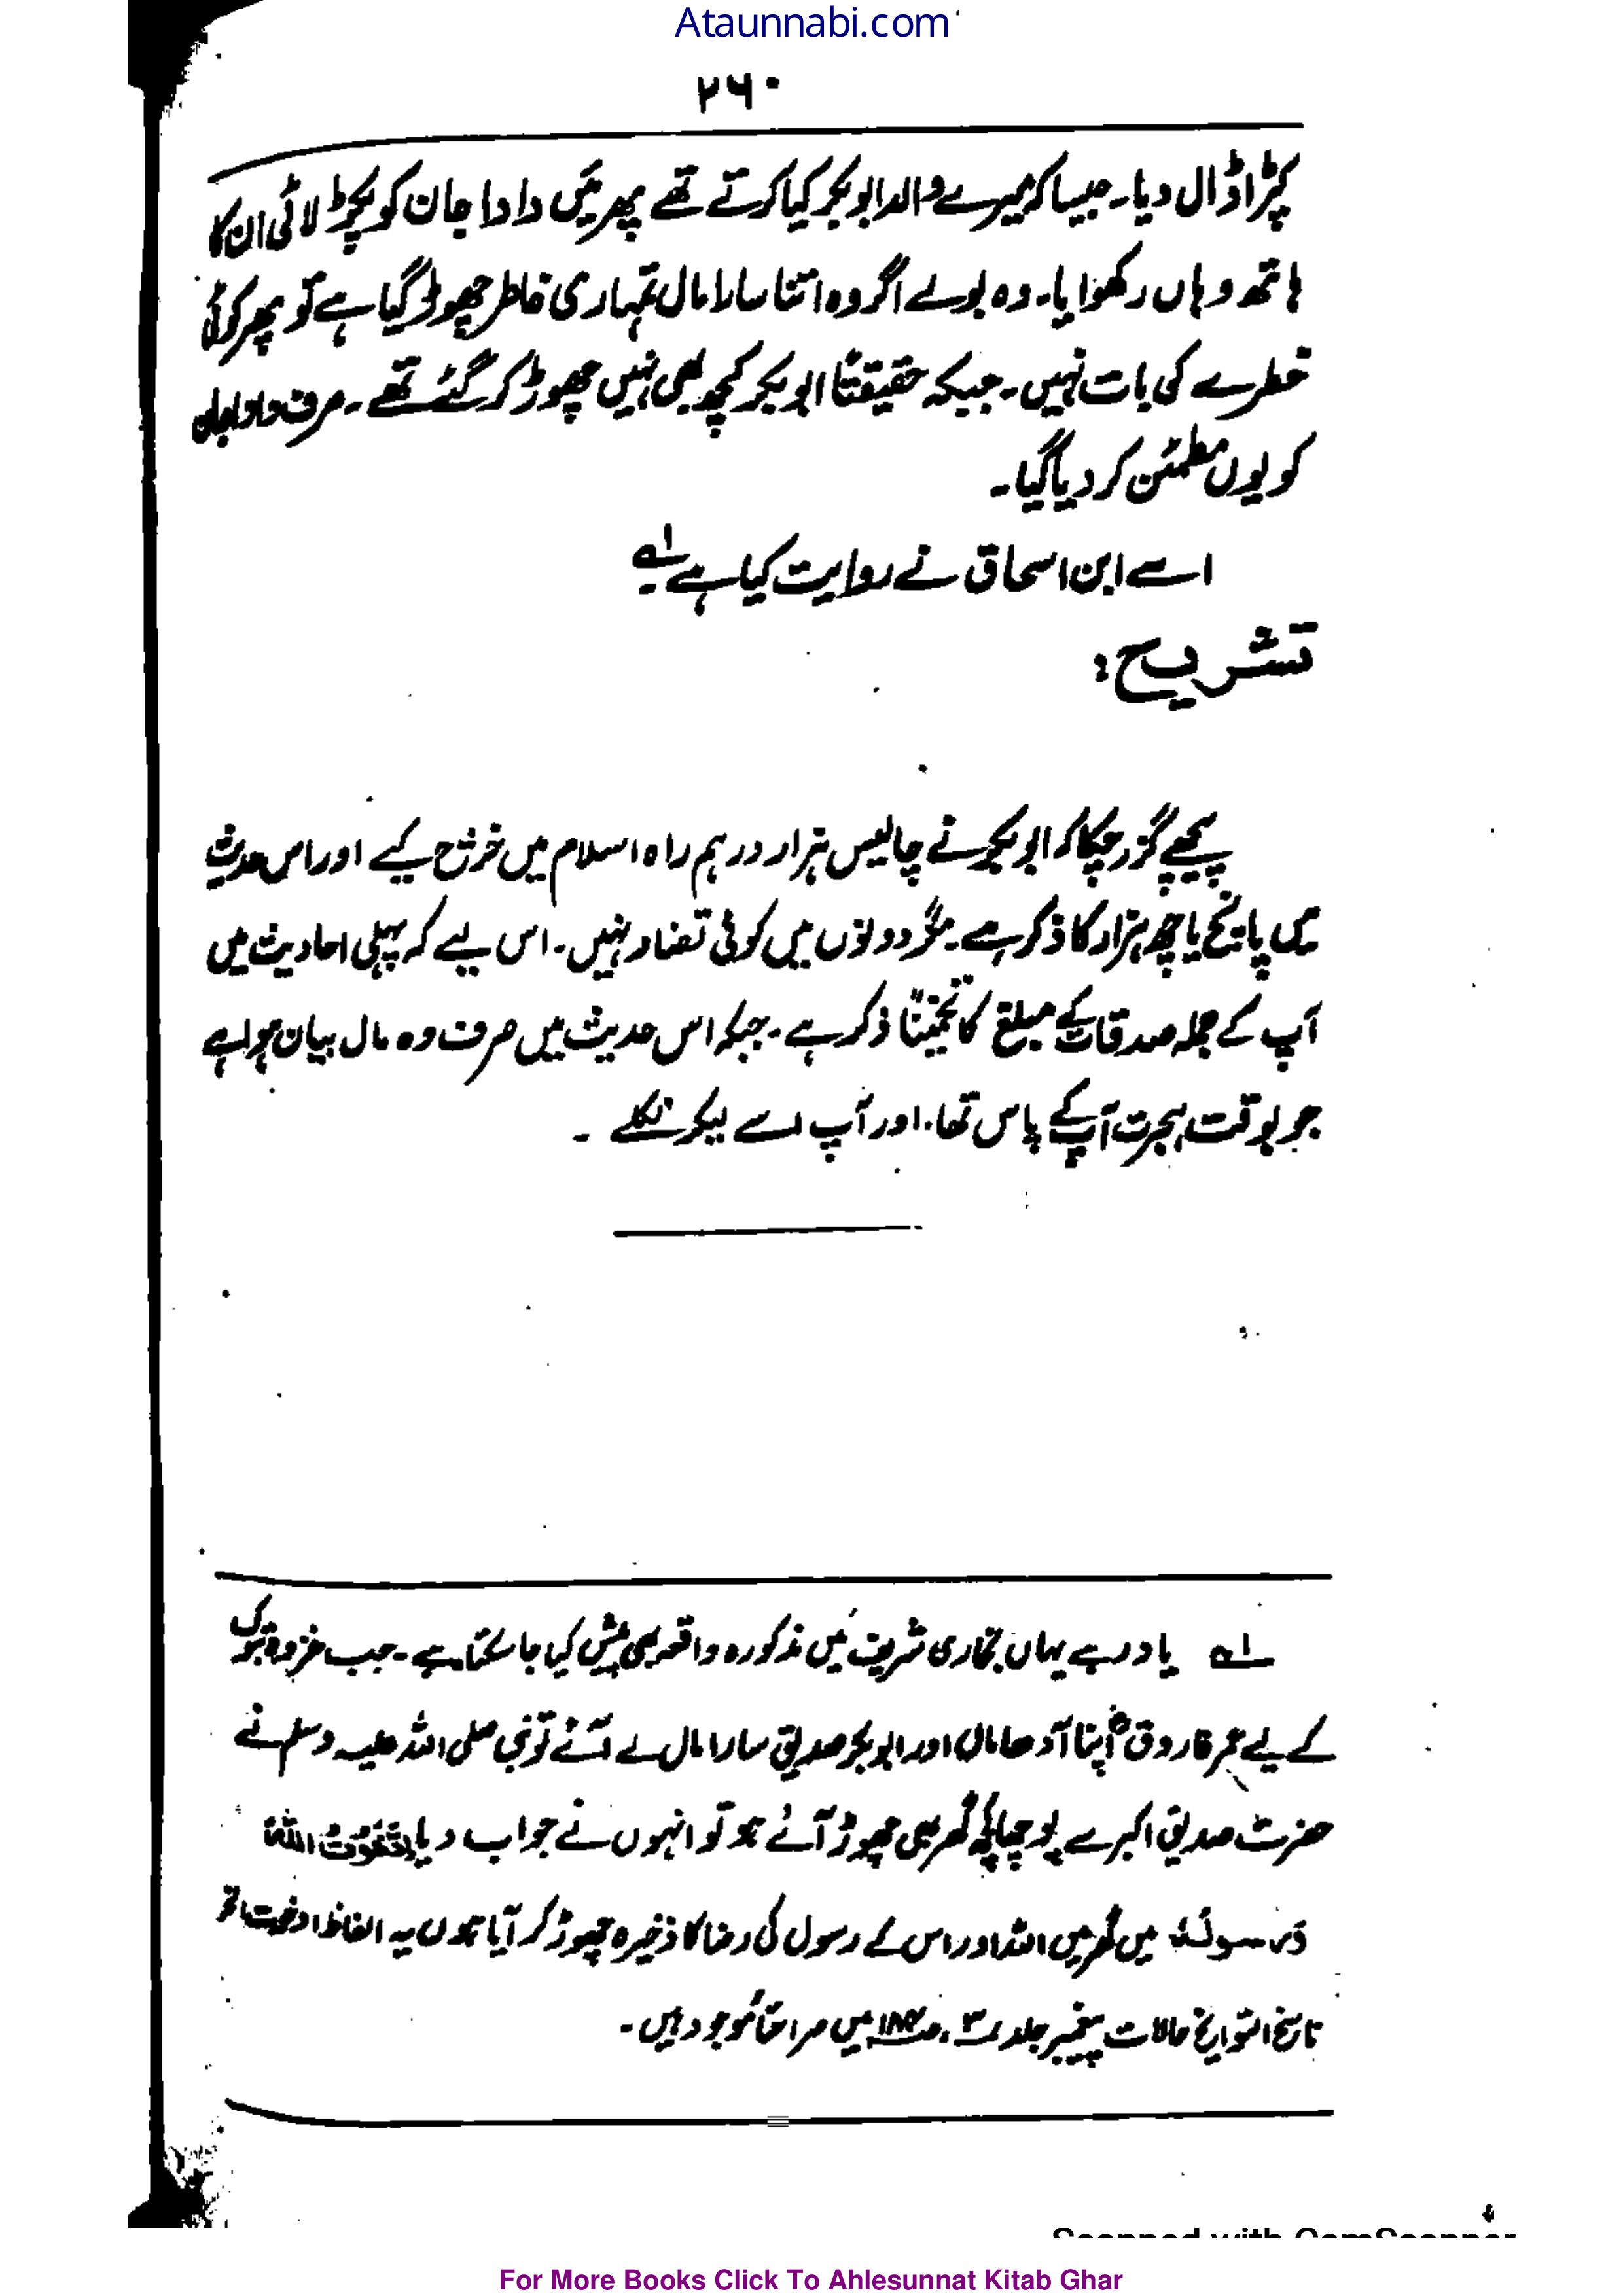 Ataunnabi.com
۲۶۰
کپڑا ڈال دیا۔ جیسا کہ میرے والد ابوبکر کیا کرتے تھے پھر میں دادا جان کو پکڑ لائی ان کا
ہاتھ وہاں رکھوایا۔ وہ بولے اگر وہ اتنا سارا مال تمہاری خاطر چھوڑ گیا ہے تو پھر کوئی
خطرے کی بات نہیں۔ جبکہ حقیقتاً ابوبکر کچھ بھی نہیں چھوڑ کر گئے تھے۔ صرف دادا جان
کو یوں مطمئن کر دیا گیا۔
اسے ابن اسحاق نے روایت کیا ہے ۱ھ
تشریح:
پیچھے گزر چکا کہ ابوبکر نے چالیس ہزار درہم راہ اسلام میں خرچ کیے اور اس حدیث
میں پانچ یا چھ ہزار کا ذکر ہے۔ مگر دونوں میں کوئی تضاد نہیں۔ اس لیے کہ پہلی احادیث میں
آپ کے جملہ صدقات کے مبلغ کا تخمیناً ذکر ہے۔ جبکہ اس حدیث میں صرف وہ مال بیان ہوا ہے
جو بوقت ہجرت آپ کے پاس تھا۔ اور آپ اسے لیکر نکلے ۔
۱ھ یاد رہے یہاں بخاری شریف میں مذکورہ واقعہ بھی پیش کیا جا سکتا ہے۔ جب غزوہ تبوک
کے لیے عمر فاروق اپنا آدھا مال اور ابوبکر صدیق سارا مال لے آئے تو نبی صلی اللہ علیہ وسلم نے
حضرت صدیق اکبر سے پوچھا کہ گھر بھی چھوڑ آئے ہو تو انہوں نے جواب دیا اللہ
ورسولہ میں گھر میں اللہ اور اس کے رسول کی رضا کا ذخیرہ چھوڑ کر آیا ہوں یہ الفاظ
ناسخ التواریخ حالات پیغمبر جلد ۳ ص ۱۸۴ میں صراحتاً موجود ہیں۔
Scanned with CamScanner
For More Books Click To Ahlesunnat Kitab Ghar